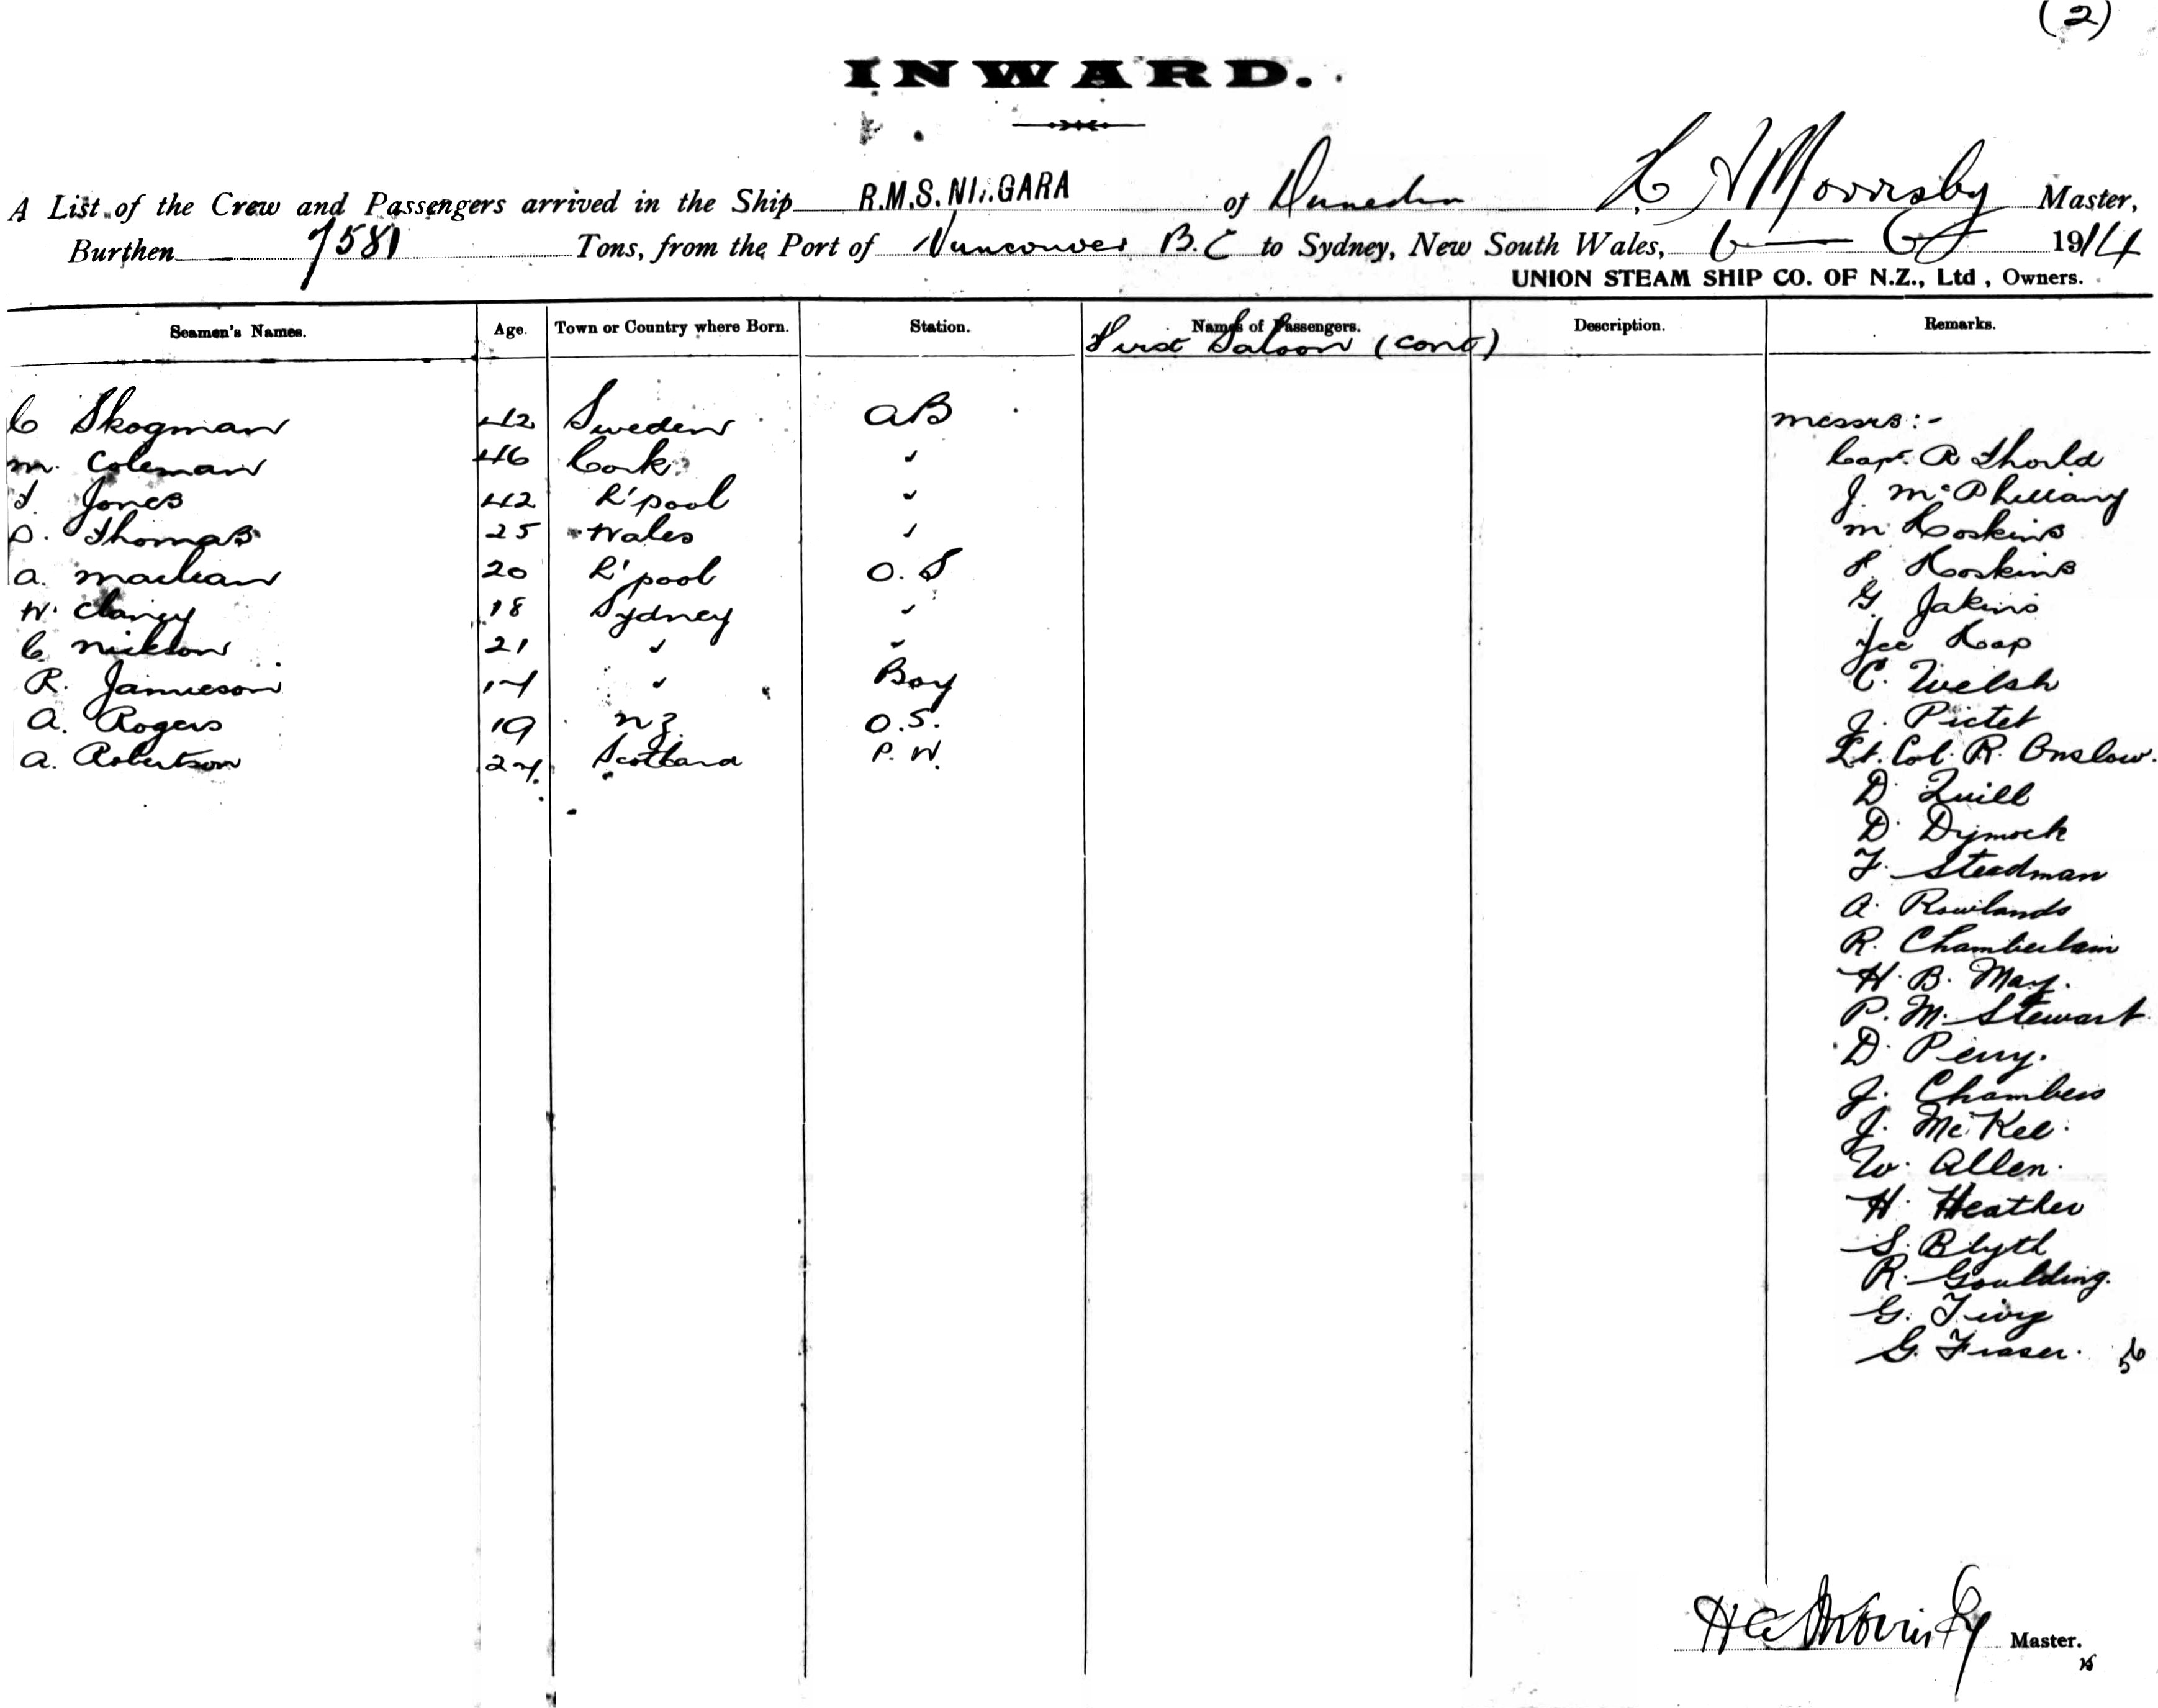 (2)
INWARD.
A List of the Crew and Passengers arrived in the Ship R.M.S. NIAGARA of Dunedin Morrisby Master,
Burthen 7581 Tons, from the Port of Vancouver B.C to Sydney, New South Wales, 6 — 6 1914
UNION STEAM SHIP CO. OF N.Z., Ltd , Owners.
Seamen's Names. Age. Town or Country where Born. Station. Names of Passengers. Description. Remarks.
First Saloon (cont)
C Skogman 42 Sweden AB
M. Coleman 46 Cork "
J. Jones 42 L'pool "
D. Thomas 25 Wales "
A. Maclean 20 L'pool O.S
W. Clancy 18 Sydney "
C. Nielson 21 " "
R. Jamieson 17 " Boy
A. Rogers 19 NZ. O.S.
A. Robertson 27 Scotland P.W.
Messrs:-
Capt. R Thorld
J. McPhillamy
M Hoskins
L. Hoskins
G. Jakins
Yee Hap
C. Welsh
J. Pictet
Lt. Col. R. Onslow.
D. Quill
D. Dymock
F. Steadman
A. Rowlands
R. Chamberlain
H. B. May.
P. M. Stewart
D. Perry.
J. Chambers
J. McKee.
W. Allen.
H. Heather
S. Blyth
R. Goulding.
G. Tivey
G. Fraser. 56
Morrisby Master.